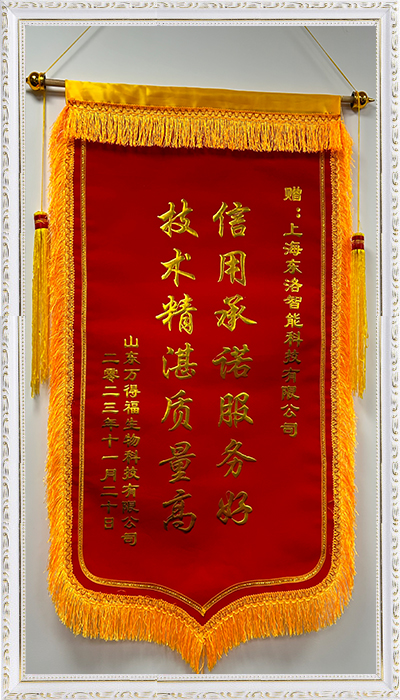 赠：上海东洛智能科技有限公司
信用承诺服务好
技术精湛质量高
山东万得福生物科技有限公司
二零二三年十一月二十日